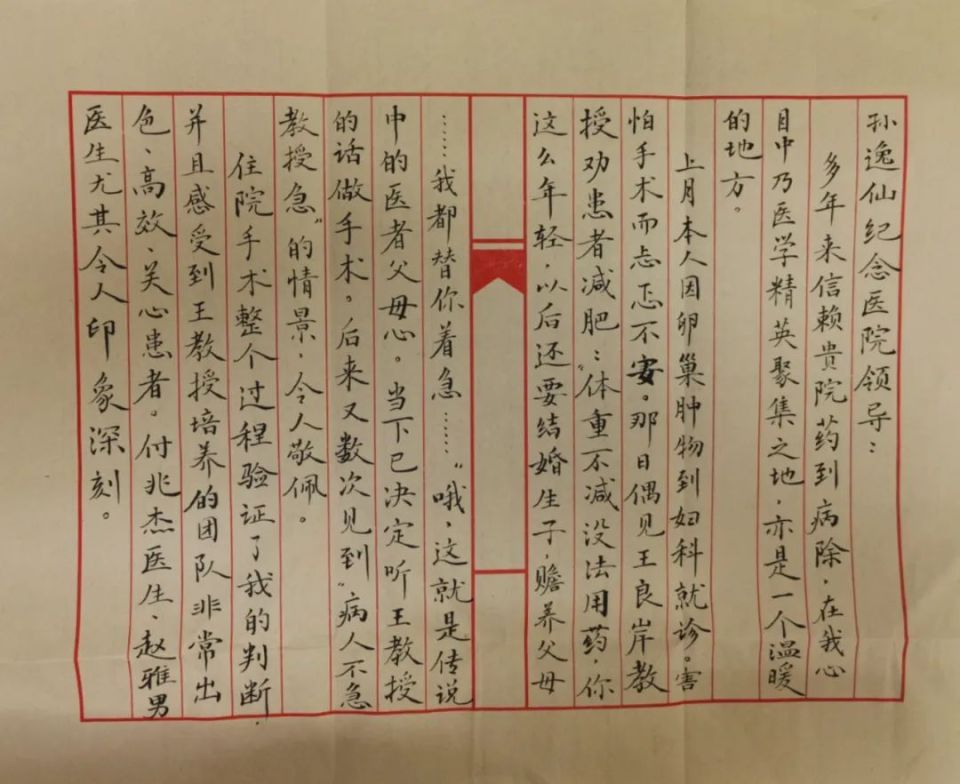 孙逸仙纪念医院领导：
多年来信赖贵院药到病除，在我心
目中乃医学精英聚集之地，亦是一个温暖
的地方。
上月本人因卵巢肿物到妇科就诊。害
怕手术而忐忑不安。那日偶见王良岸教
授劝患者减肥：“体重不减没法用药，你
这么年轻，以后还要结婚生子，赡养父母
……我都替你着急……”哦，这就是传说
中的医者父母心。当下已决定听王教授
的话做手术。后来又数次见到“病人不急
教授急”的情景，令人敬佩。
住院手术整个过程验证了我的判断，
并且感受到王教授培养的团队非常出
色、高效、关心患者。付兆杰医生、赵雅男
医生尤其令人印象深刻。